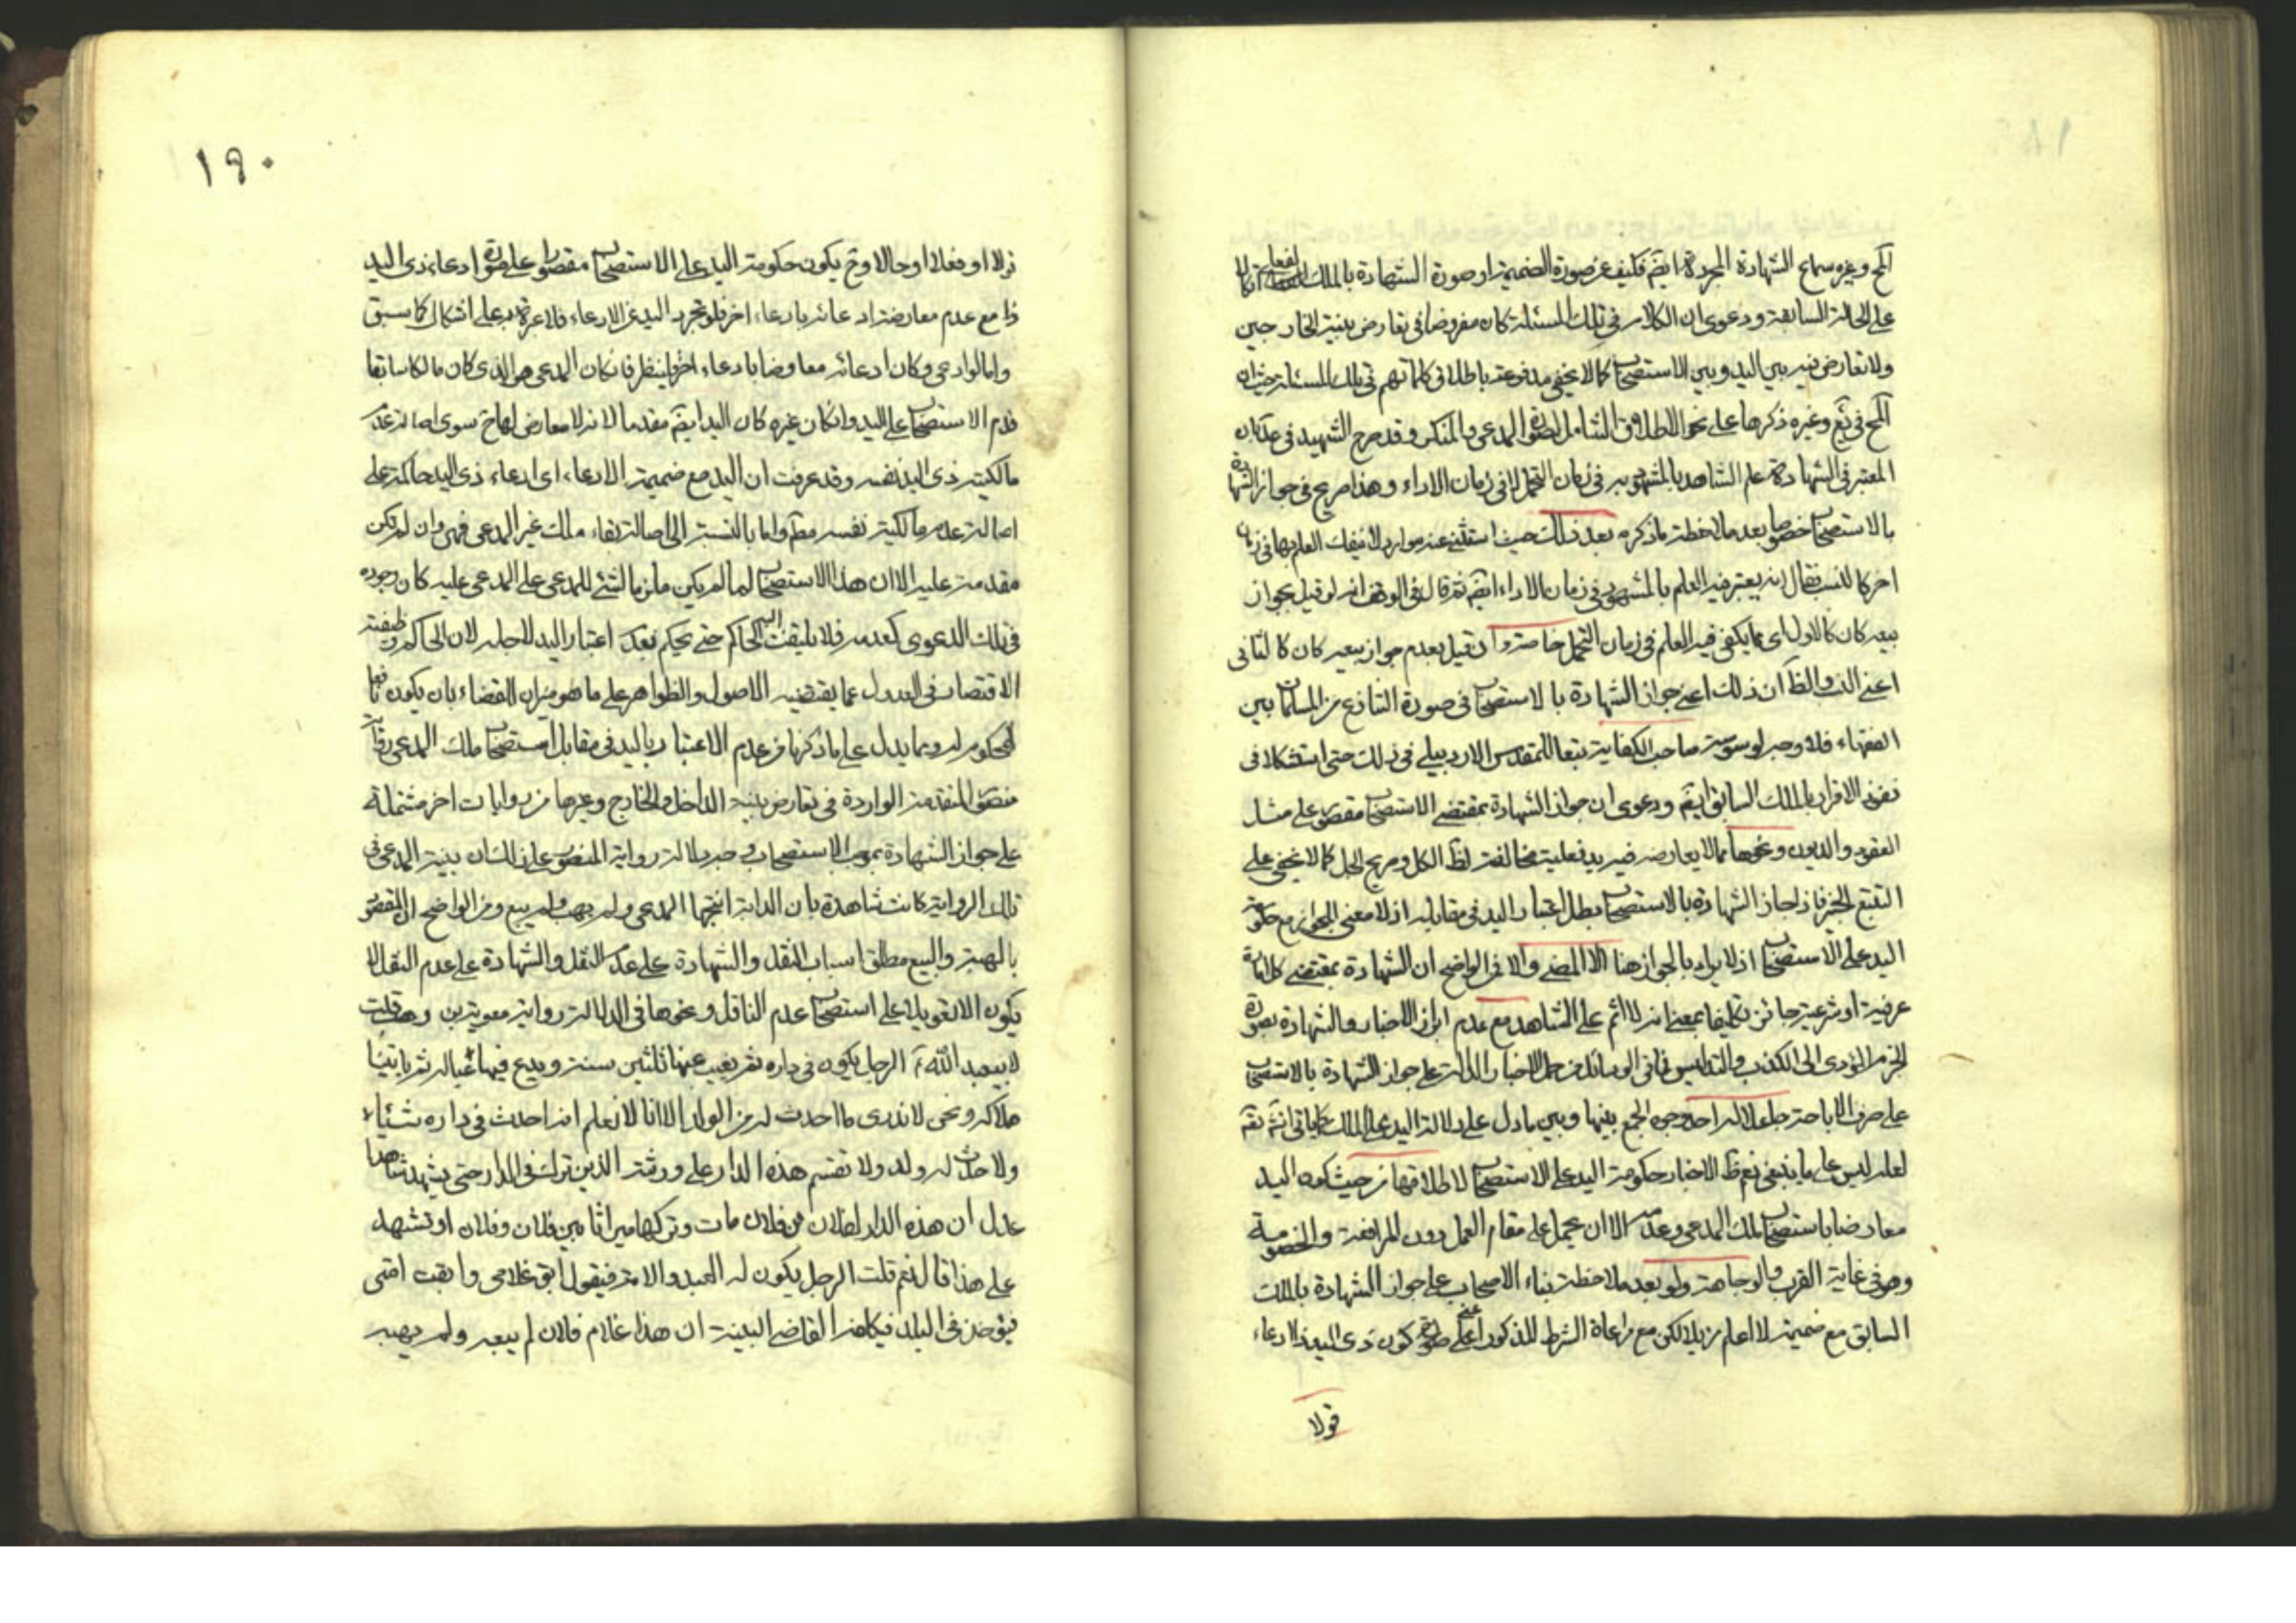 المح وغيره سماع الشهادة المجردة ايضم فكيف عن صورة الضميمة او صورة الشهادة بالملك الفعلي اتكالا
على الحالة السابقة ودعوى ان الكلام في تلك المسئلة كان مفروضا في تعارض بينة الخارجين
ولا تعارض فيه بين اليد وبين الاستصحاب كما لا يخفى مدفوعة باطلاق كلماتهم في تلك المسئلة حيث ان
المح في يع وغيره ذكرها على نحو الاطلاق الشامل لصورة المدعي والمنكر وقد صرح الشهيد في عد بان
المعتبر في الشهادة علم الشاهد بالمشهود به في زمان التحمل لا في زمان الاداء وهذا صريح في جواز الشهادة
بالاستصحاب خصوصا بعد ملاحظة ما ذكره بعد ذلك حيث استثنى عنه موارد لا ينفك العلم بها في زمان
اخر كالنسب فقال انه يعتبر فيه العلم بالمشهود في زمان الاداء ايضم ثم قال في الوقف انه لو قيل بجواز
بيعه كان كالاول اي مما يكفي فيه العلم في زمان التحمل خاصة وان قيل بعدم جواز بيعه كان كالثاني
اعني النسب والظ ان ذلك اعني جواز الشهادة بالاستصحاب في صورة التنازع من المسلمات بين
الفقهاء فلا وجه لوسوسة صاحب الكفاية تبعا للمقدس الاردبيلي في ذلك حتى استشكلا في
نفوذ الاقرار بالملك السابق ايضم ودعوى ان جواز الشهادة بمقتضى الاستصحاب مقصور على مثل
العقود والديون ونحوها مما لا يعارضه فيه يد فعلية مخالفة لظ الكل وصريح الجل كما لا يخفى على
المتتبع الخبير فاذا جاز الشهادة بالاستصحاب بطل اعتبار اليد في مقابله اذ لا معنى للجواز مع حكومة
اليد على الاستصحاب اذ لا يراد بالجواز هنا الا المضي والا فمن الواضح ان الشهادة بمقتضى كل امارة
عرفية او شرعية جائز تكليفا بمعنى انه لا اثم على الشاهد مع عدم ابراز الاخبار والشهادة بصورة
الجزم المؤدي الى الكذب والتدليس فما في الوسائل من حمل الاخبار الدالة على جواز الشهادة بالاستصحاب
على صرف الاباحة جاعلا له احد وجوه الجمع بينها وبين ما دل على دلالة اليد على الملك كما ياتي انشم تعم
لعله ليس على ما ينبغي نعم ظ الاخبار حكومة اليد على الاستصحاب لاطلاقها من حيث كون اليد
معارضا باستصحاب ملك المدعي وعدمه الا ان يحمل على مقام العمل دون المرافعة والخصومة
وهو في غاية القرب والوجاهة ولو بعد ملاحظة بناء الاصحاب على جواز الشهادة بالملك
السابق مع ضميمة لا اعلم مزيلا لكن مع مراعاة الشرط المذكور اعني كون ذي اليد ذا ادعاء
قولا
١٩٠
قولا او فعلا او حالا وح يكون حكومة اليد على الاستصحاب مقصورا على صورة ادعاء ذي اليد
ذا مع عدم معارضة ادعائه بادعاء اخر فلو تجرد اليد عن الادعاء فلا عبرة به على اشكال كما سبق
واما لو ادعى وكان ادعائه معارضا بادعاء اخر فلينظر فان كان المدعي هو الذي كان مالكا سابقا
قدم الاستصحاب على اليد وان كان غيره كان اليد ايضم مقدما لانه لا معارض لها ح سوى اصالة عدم
مالكية ذي اليد نفسه وقد عرفت ان اليد مع ضميمة الادعاء اي ادعاء ذي اليد حاكمة على
اصالة عدم مالكية نفسه مطم واما بالنسبة الى اصالة بقاء ملك غير المدعي فهي وان لم يكن
مقدمة عليه الا ان هذا الاستصحاب لما لم يكن ملزما لشئ للمدعي على المدعى عليه كان وجوده
في تلك الدعوى كعدمه فلا يلتفت اليه الحاكم حتى يحكم بعدم اعتبار اليد لاجله لان الحاكم وظيفته
الاقتصار في العدول عما يقتضيه الاصول والظواهر على ما هو ميزان القضاء بان يكون نافعا
للمحكوم له ومما يدل على ما ذكرنا من عدم الاعتبار باليد في مقابل استصحاب ملك المدعي رواية
منصور المتقدمة الواردة في تعارض بينة الداخل والخارج وغيرها من روايات اخر مشتملة
على جواز الشهادة بموجب الاستصحاب وجه دلالة رواية المنصور على ذلك ان بينة المدعي في
تلك الرواية كانت شاهدة بان الدابة انتجها المدعي ولم يهب ولم يبع ومن الواضح ان المقصود
بالهبة والبيع مطلق اسباب النقل والشهادة على عدم النقل والشهادة على عدم النقل لا
يكون الا تعويلا على استصحاب عدم الناقل ونحوها في الدلالة رواية معوية بن وهب قلت
لابيعبد الله ع الرجل يكون في داره ثم يغيب عنها ثلثين سنة ويدع فيها عياله ثم ياتينا
هلاكه ونحن لا ندري ما احدث له من الولد الا انا لا نعلم انه احدث في داره شيئا
ولا حدث له ولد ولا تقسم هذه الدار على ورثته الذين ترك في الدار حتى يشهد شاهدا
عدل ان هذه الدار لفلان بن فلان مات وتركها ميراثا بين فلان وفلان او تشهد
على هذا قال نعم قلت الرجل يكون له العبد والامة فيقول ابق غلامي وابقت امتي
فيؤخذ في البلد فيكلفه القاضي البينة ان هذا غلام فلان لم يبعه ولم يهبه